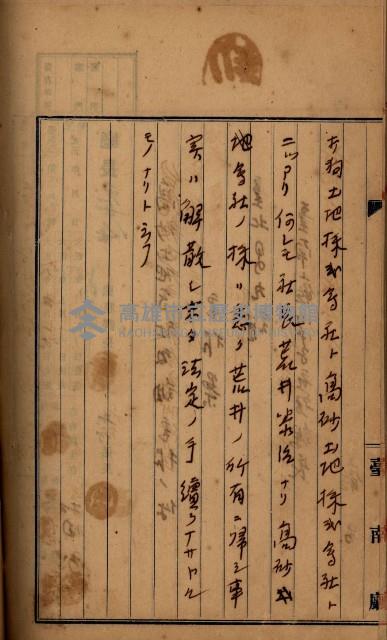 打狗土地株式會社ト高砂土地株式會社ト
二ツアリ何レモ社長荒井泰治ナリ高砂土
地會社ノ株ハ悉ク荒井ノ所有ニ帰シ事
実ハ解散シタルモ法定ノ手續ヲナサヽル
モノナリト云フ
臺南廳
高雄市立歷史博物館
KAOHSIUNG MUSEUM OF HISTORY